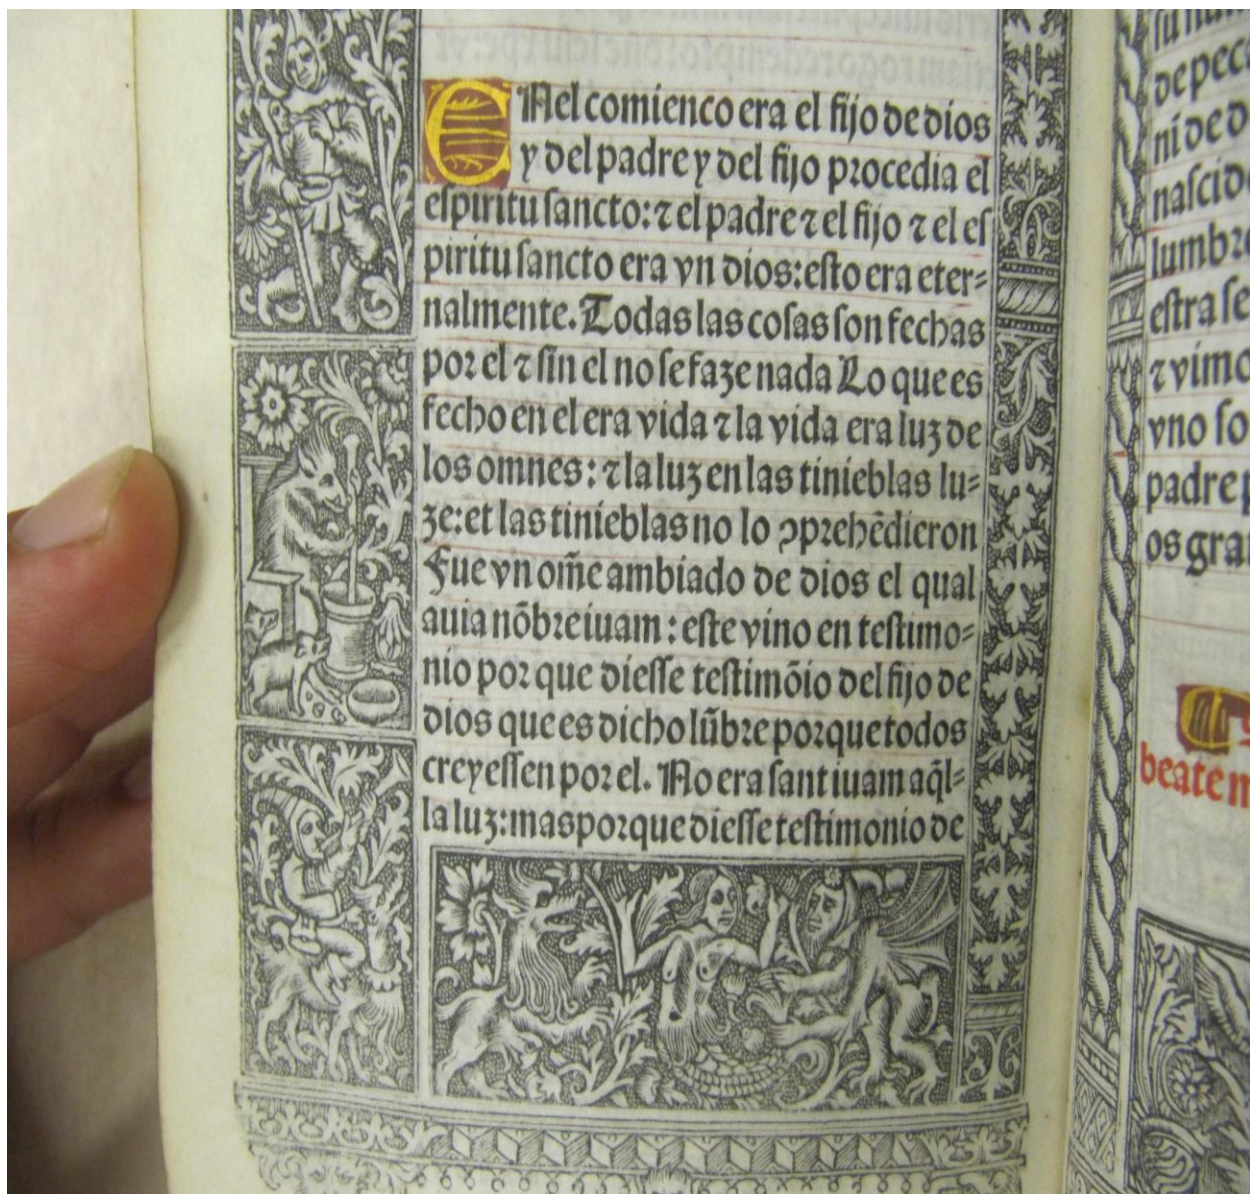 ENel comienco era el fijo de dios
y del padre y del fijo procedia el
eſpiritu ſancto: ⁊ el padre ⁊ el fijo ⁊ el eſ
piritu ſancto era vn dios: eſto era eter⸗
nalmente. Todas las coſas ſon fechas
por el ⁊ ſin el no ſe faze nada Lo que es
fecho en el era vida ⁊ la vida era luz de
los omnes: ⁊ la luz en las tinieblas lu⸗
ze: et las tinieblas no lo ꝯprehēdieron
Fue vn om̄e ambiado de dios el qual
auia nōbre iuam: eſte vino en teſtimo⸗
nio por que dieſſe teſtimōio del fijo de
dios que es dicho lūbre porque todos
creyeſſen por el. No era ſant iuam aq̄l⸗
la luz: mas porque dieſſe teſtimonio de
de pecc
ni de d
naſcid
lumbre
eſtra ſe
⁊ vimo
vno ſo
padre p
os gra
beate m